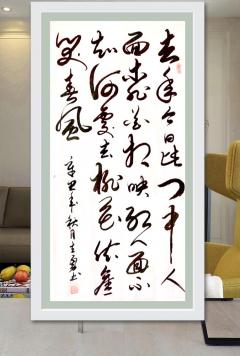 去年今日此门中人
面桃花相映红人面不
知何处去桃花依旧
笑春风
辛丑年秋月